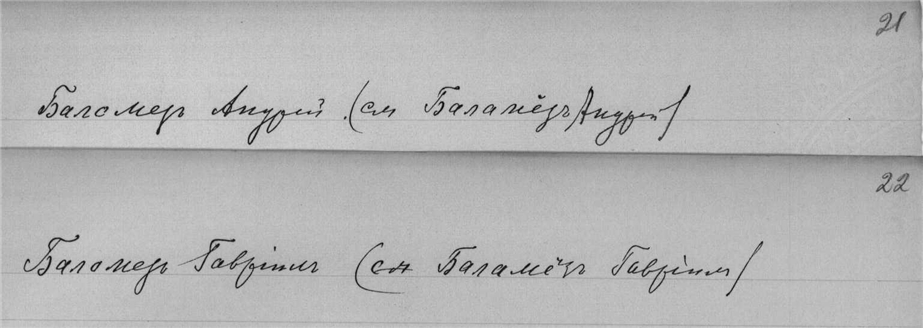 21
Баломедъ Андрей (см Баламѣдъ Андрей)
22
Баломедъ Гавріилъ (см Баламёдъ Гавріилъ)